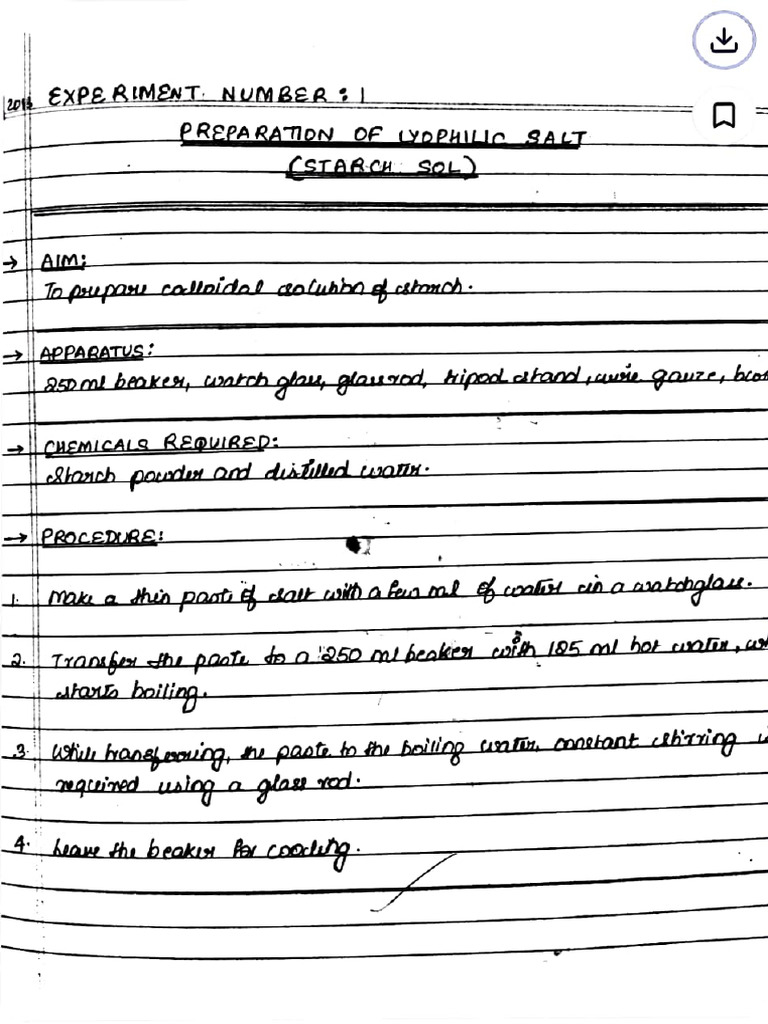 EXPERIMENT NUMBER: 1
PREPARATION OF LYOPHILIC SALT
(STARCH SOL)
→ AIM:
To prepare colloidal solution of starch.
→ APPARATUS:
250 ml beaker, watch glass, glass rod, tripod stand, wire gauze,
→ CHEMICALS REQUIRED:
Starch powder and distilled water.
→ PROCEDURE:
1. Make a thin paste of salt with a few ml of water in a watchglass.
2. Transfer the paste to a 250 ml beaker with 125 ml hot water,
starts boiling.
3. While transferring, the paste to the boiling water, constant stirring
required using a glass rod.
4. Leave the beaker for cooling.